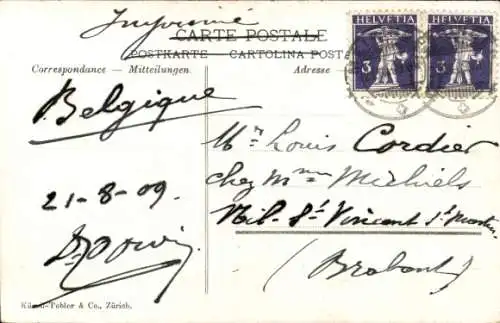 Imprimé
CARTE POSTALE
POSTKARTE — CARTOLINA POSTE
Correspondance — Mitteilungen
Adresse
HELVETIA HELVETIA
3 3
Belgique
21-8-09.
Mr Louis Cordier
chez Mme Michiels
Nil-St Vincent St Martin
(Brabant)
Künzli-Tobler & Co., Zürich.